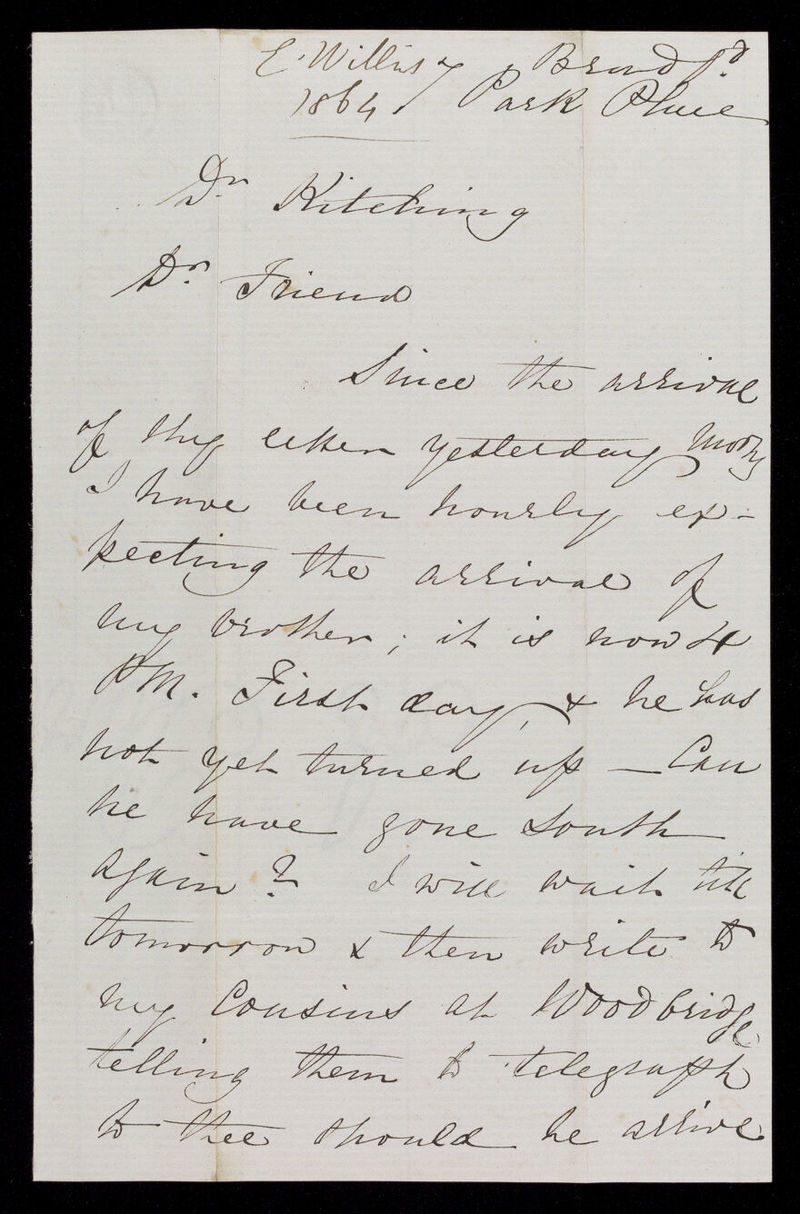 E. Willis Bradfd
1864. Park Place
Dr Kitching
Dr. Friend
Since the arrival
of thy letter yesterday Morng
I have been hourly ex-
pecting the arrival of
my brother; it is now 4
PM. First day, & he has
not yet turned up — Can
he have gone South
again? I will wait till
tomorrow & then write to
my Cousins at Woodbridge
telling them to telegraph
to thee should he arrive